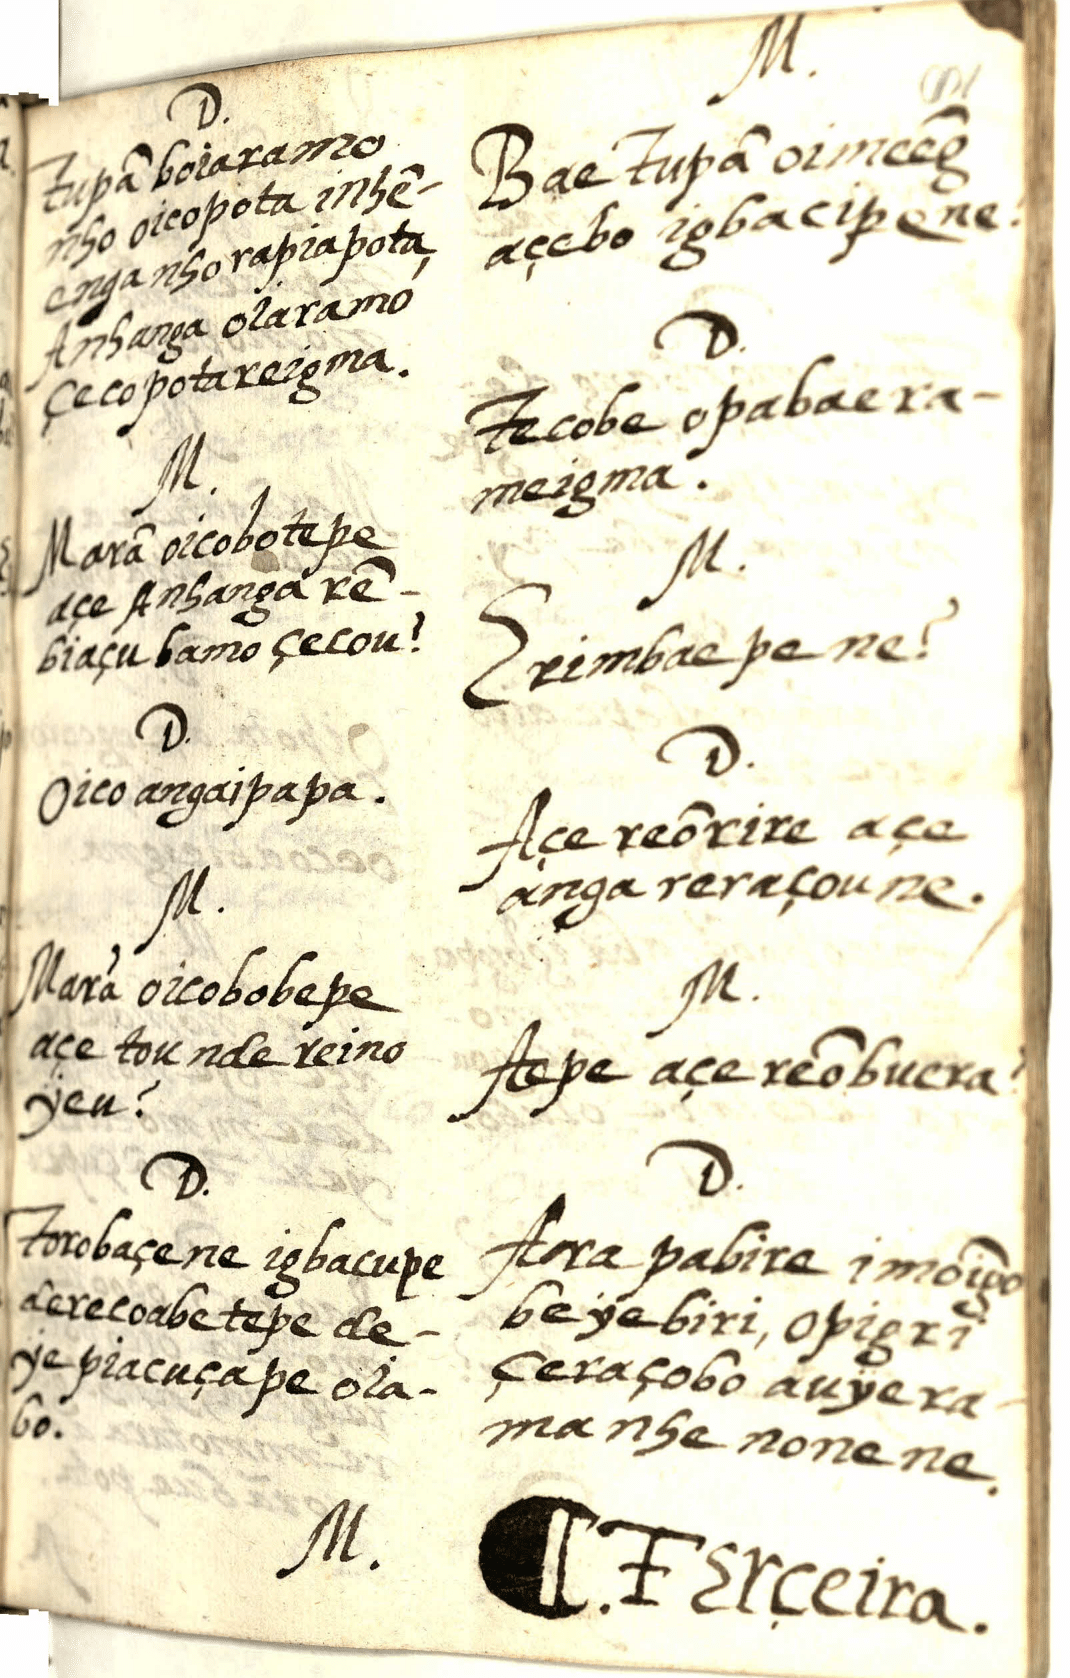 D.
Tupã boiaramo
nho oico pota inhẽ-
enga nho rapiapota,
Anhanga oiaramo
çeco potareigma.
M.
Marã oicobo tepe
açe Anhanga rẽ-
biaçu bamo çecou?
D.
Oico angaipapa.
M.
Marã oicobo bepe
açe tou nde reino
ÿeu?
D.
Torobaçe ne igbacupe
derecoabe tepe de-
ÿe piacuçape oia-
bo.
M.
M.
Bae Tupã oimeẽg
açebo igbacipe ne?
D.
Tecobe opabaera-
meigma.
M.
Erimbae pe ne?
D.
Açe reõrire açe
anga reraçou ne.
M.
Atepe açe reõbuera?
D.
Aora pabire imoiğo
be ÿebiri, opigri
çeraçobo auÿera-
manhe none ne.
¶. TErçeira.